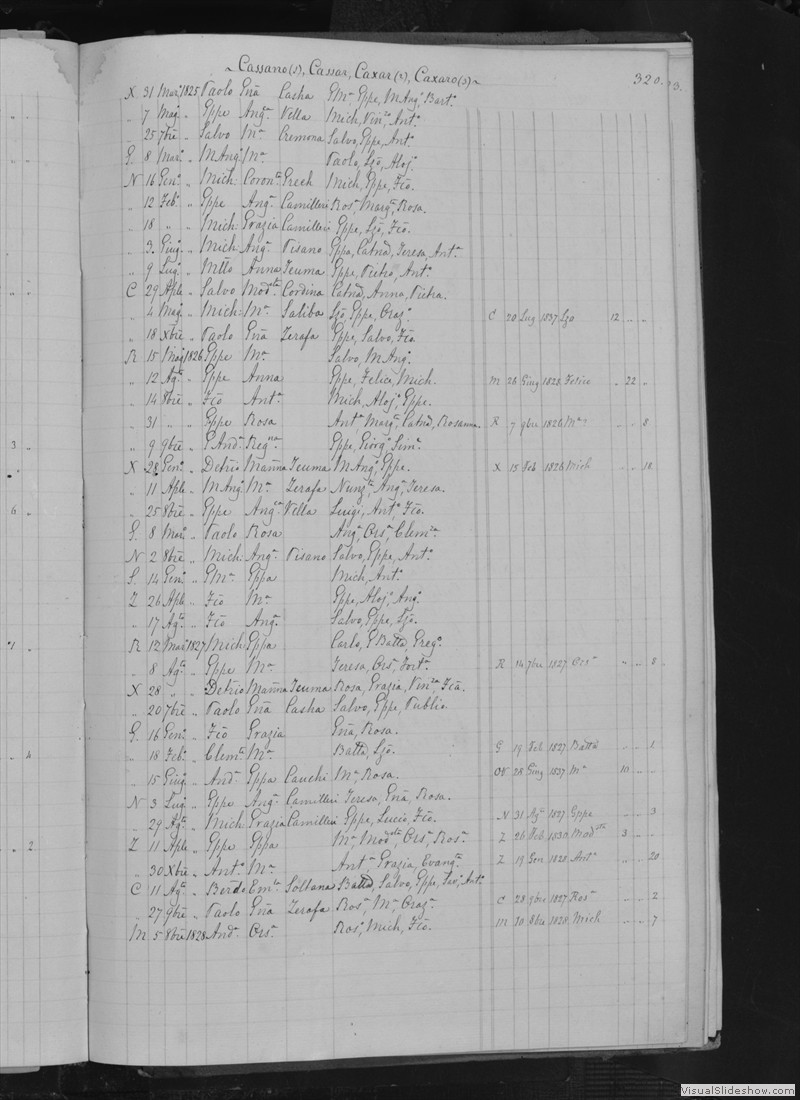 ~ Cassano(s), Cassar, Caxar(s), Caxaro(s) ~ 320.
X 31 Mar. 1825 Paolo Gña Casha GMa Eppe, MAngo, Barto
" 7 Mago " Eppe Anga Vella Mich, Vinzo, Anto
" 25 7bre " Salvo Ma Cremona Salvo, Eppe, Anto
G. 8 Maro " MAngo Ma Paolo, Lzo, Alojo
N 16 Geno " Mich: Corona Grech Mich, Eppe, Fco.
" 12 Feb. " Eppe Anga Camilleri Rosa, Marga, Rosa.
" 18 " " Mich: Grazia Camilleri Eppe, Lzo, Fco.
" 3 Giuo " Mich: Anga Pisano Eppa, Catnd, Teresa, Anta
" 9 Lugo " Mtto Anna Teuma Eppe, Pietro, Anto
C 29 Aple " Salvo Modta Cordina Catnd, Anna, Pietra.
" 4 Mago " Mich: Ma Saliba Lzo, Eppe, Oraz. C 20 Lug 1837 Lzo 12 " "
" 18 Xbre " Paolo Gña Zerafa Eppe, Salvo, Fco.
R 15 Mago 1826 Eppe Ma Salvo, MAngo
" 12 Ago " Eppe Anna Eppe, Felice, Mich. M 26 Giug 1828 Felice " 22 "
" 14 8bre " Fco Anta Mich, Alojo, Eppe.
" 31 " " Eppe Rosa Anta, Marga, Catnd, Rosanna. R 7 9bre 1826 Ma " " 8
3 " " 9 9bre " GAnd. Regna Eppe, Giorgo, Sima
X 28 Geno " Detrio Marña Teuma MAngo, Eppe. X 15 Feb 1826 Mich " " 18
" 11 Aple " MAngo Ma Zerafa Nunzta, Anga, Teresa.
6 " " 25 8bre " Eppe Anga Vella Luigi, Anto, Fco.
G. 8 Maro " Paolo Rosa Ango, Orsa, Clemza
N 2 8bre " Mich: Anga Pisano Salvo, Eppe, Anto
S. 14 Geno " GMa Eppa Mich, Anto
Z 26 Aple " Fco Ma Eppe, Alojo, Ango
" 17 Ago " Fco Anga Salvo, Eppe, Lzo.
1 " R 12 Maro 1827 Mich Eppa Carlo, GBatta, Grego
" 8 Ago " Eppe Ma Teresa, Orsa, Forta R 14 7bre 1827 Orsa " " 8
X 28 " " Detrio Marña Teuma Rosa, Grazia, Vinza, Fca.
" 20 7bre " Paolo Gña Casha Salvo, Eppe, Publio
G. 16 Geno " Fco Grazia Gña, Rosa.
" 4 " 18 Feb. " Clemte Ma Batta, Lzo. G 19 Feb 1827 Batta " " 1
" 15 Giuo " And. Eppa Cauchi Ma, Rosa. OV 28 Giug 1837 Ma 10 " "
N 3 Lugo " Eppe Anga Camilleri Teresa, Gña, Rosa.
" 29 Ago " Mich: Grazia Camilleri Eppe, Lucio, Fco. N 31 Ago 1827 Eppe " " 3
" 2 Z 11 Aple " Eppe Eppa Ma, Modsta, Orsa, Rosa Z 26 Feb 1830 Modsta 3 " "
" 30 Xbre " Anto Ma Anta, Grazia, Evangta Z 19 Gen 1828 Anta " " 20
C 11 Ago " Berdo Emla Soltana Batta, Salvo, Eppe, Savo, Anto
" 27 9bre " Paolo Gña Zerafa Rosa, Ma, Graza C 28 9bre 1827 Rosa " " 2
M 5 8bre 1828 And. Orsa Rosa, Mich, Fco. M 10 8bre 1828 Mich " " 7
VisualSlideshow.com